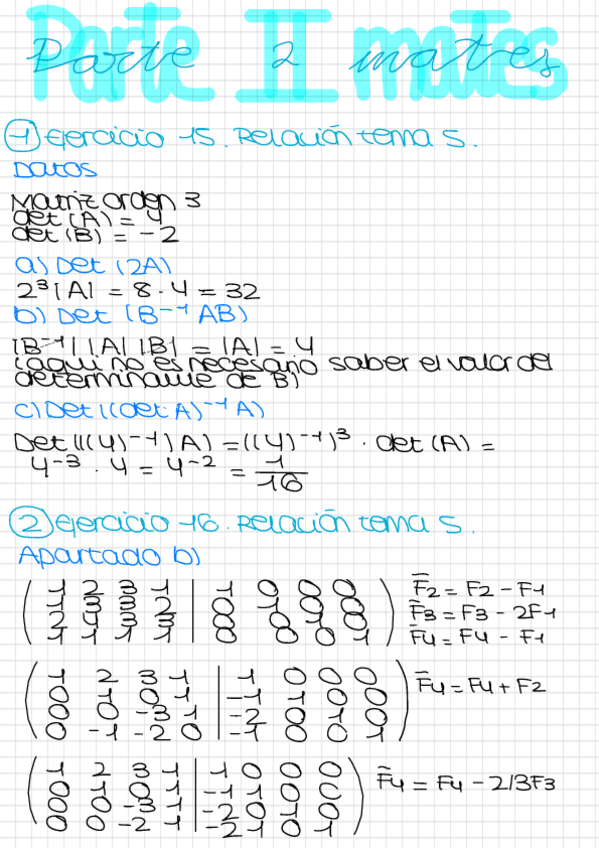 Parte II mates
Parte 2 mates
1 Ejercicio 15. Relación tema 5.
Datos
Matriz orden 3
det (A) = 4
det (B) = -2
a) Det (2A)
2³ |A| = 8 · 4 = 32
b) Det (B⁻¹ AB)
|B⁻¹| |A| |B| = |A| = 4
(aquí no es necesario saber el valor del
determinante de B)
c) Det ((det A)⁻¹ A)
Det (((4)⁻¹) A) = ((4)⁻¹)³ · det (A) =
4⁻³ · 4 = 4⁻² = 1/16
2 Ejercicio 16. Relación tema 5.
Apartado b)
1 2 3 1 | 1 0 0 0 F̅2 = F2 - F1
1 3 3 2 | 0 1 0 0 F̅3 = F3 - 2F1
2 4 3 3 | 0 0 1 0 F̅4 = F4 - F1
1 1 1 1 | 0 0 0 1
1 2 3 1 | 1 0 0 0 F̅4 = F4 + F2
0 1 0 1 | -1 1 0 0
0 0 -3 1 | -2 0 1 0
0 -1 -2 0 | -1 0 0 1
1 2 3 1 | 1 0 0 0 F̅4 = F4 - 2/3F3
0 1 0 1 | -1 1 0 0
0 0 -3 1 | -2 0 1 0
0 0 -2 1 | -2 1 0 1